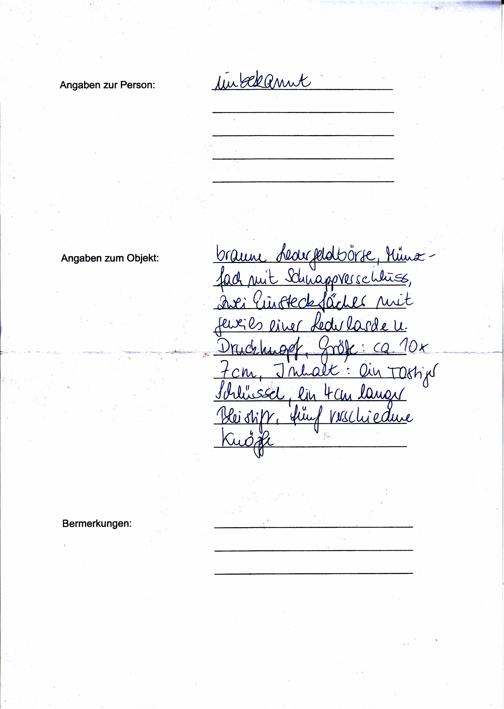 Angaben zur Person: unbekannt
Angaben zum Objekt: braune Ledergeldbörse, Münz-
fach mit Schnappverschluss,
zwei Einsteckfächer mit
jeweils einer Lederlasche u.
Druckknopf, Größe: ca. 10x
7cm, Inhalt: ein rostiger
Schlüssel, ein 4cm langer
Bleistift, fünf verschiedene
Knöpfe
Bermerkungen: